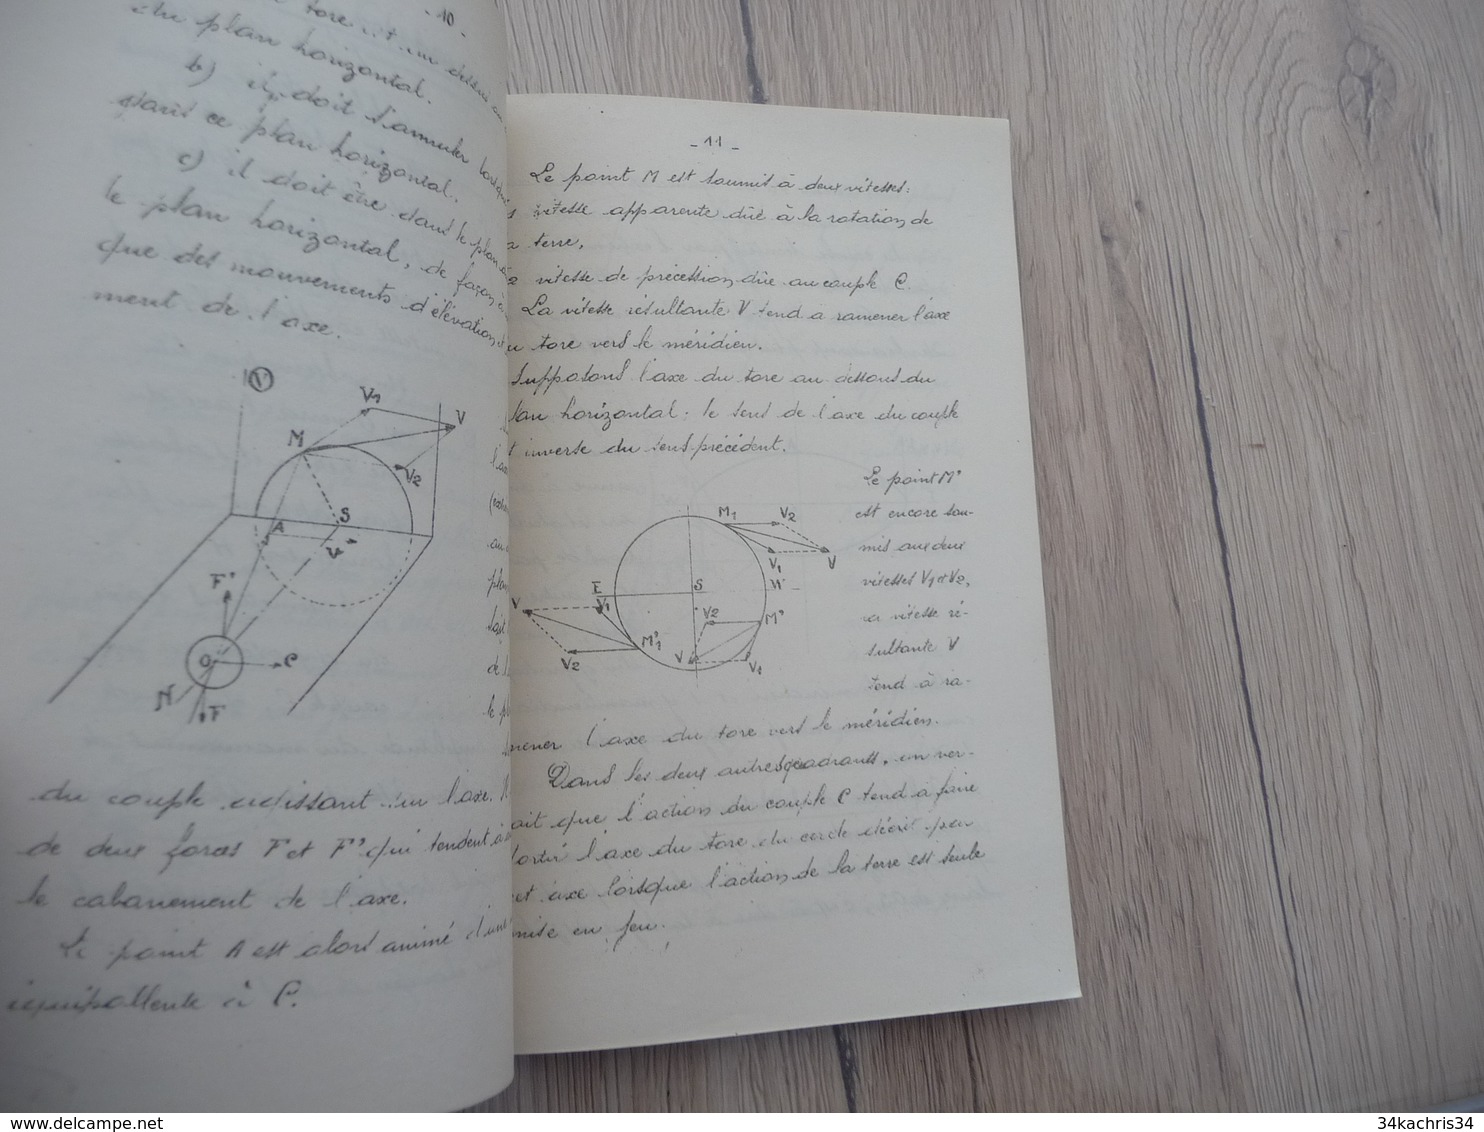 - 10 -
tore est au dessus du
du plan horizontal.
b) il doit s'annuler lorsque
dans ce plan horizontal.
c) il doit être dans le plan
le plan horizontal, de façon à
que des mouvements d'élévation
ment de l'axe.
V
V1
V
M
V2
A
S
V
F'
O
C
N
F
du couple agissant sur l'axe.
de deux forces F et F' qui tendent à
le cabanement de l'axe.
Le point A est alors animé d'une
équipollente à C.
- 11 -
Le point M est soumis à deux vitesses:
vitesse apparente dûe à la rotation de
terre,
2 vitesse de précession dûe au couple C.
La vitesse résultante V tend a ramener l'axe
tore vers le méridien.
Supposons l'axe du tore au dessous du
horizontal: le sens de l'axe du couple
inverse du sens précédent.
Le point M'
est encore sou-
mis aux deux
vitesses V1 et V2,
la vitesse ré-
sultante V
tend à ra-
M1
V2
V1
V
E
S
W
V
V1
V2
M'
M'1
V2
V
V1
mener l'axe du tore vers le méridien.
Dans les deux autres quadrants, on ver-
rait que l'action du couple C tend à faire
sortir l'axe du tore du cercle décrit par
cet axe lorsque l'action de la terre est seule
mise en jeu.
34kachris34
www.delcampe.net
34kachris34